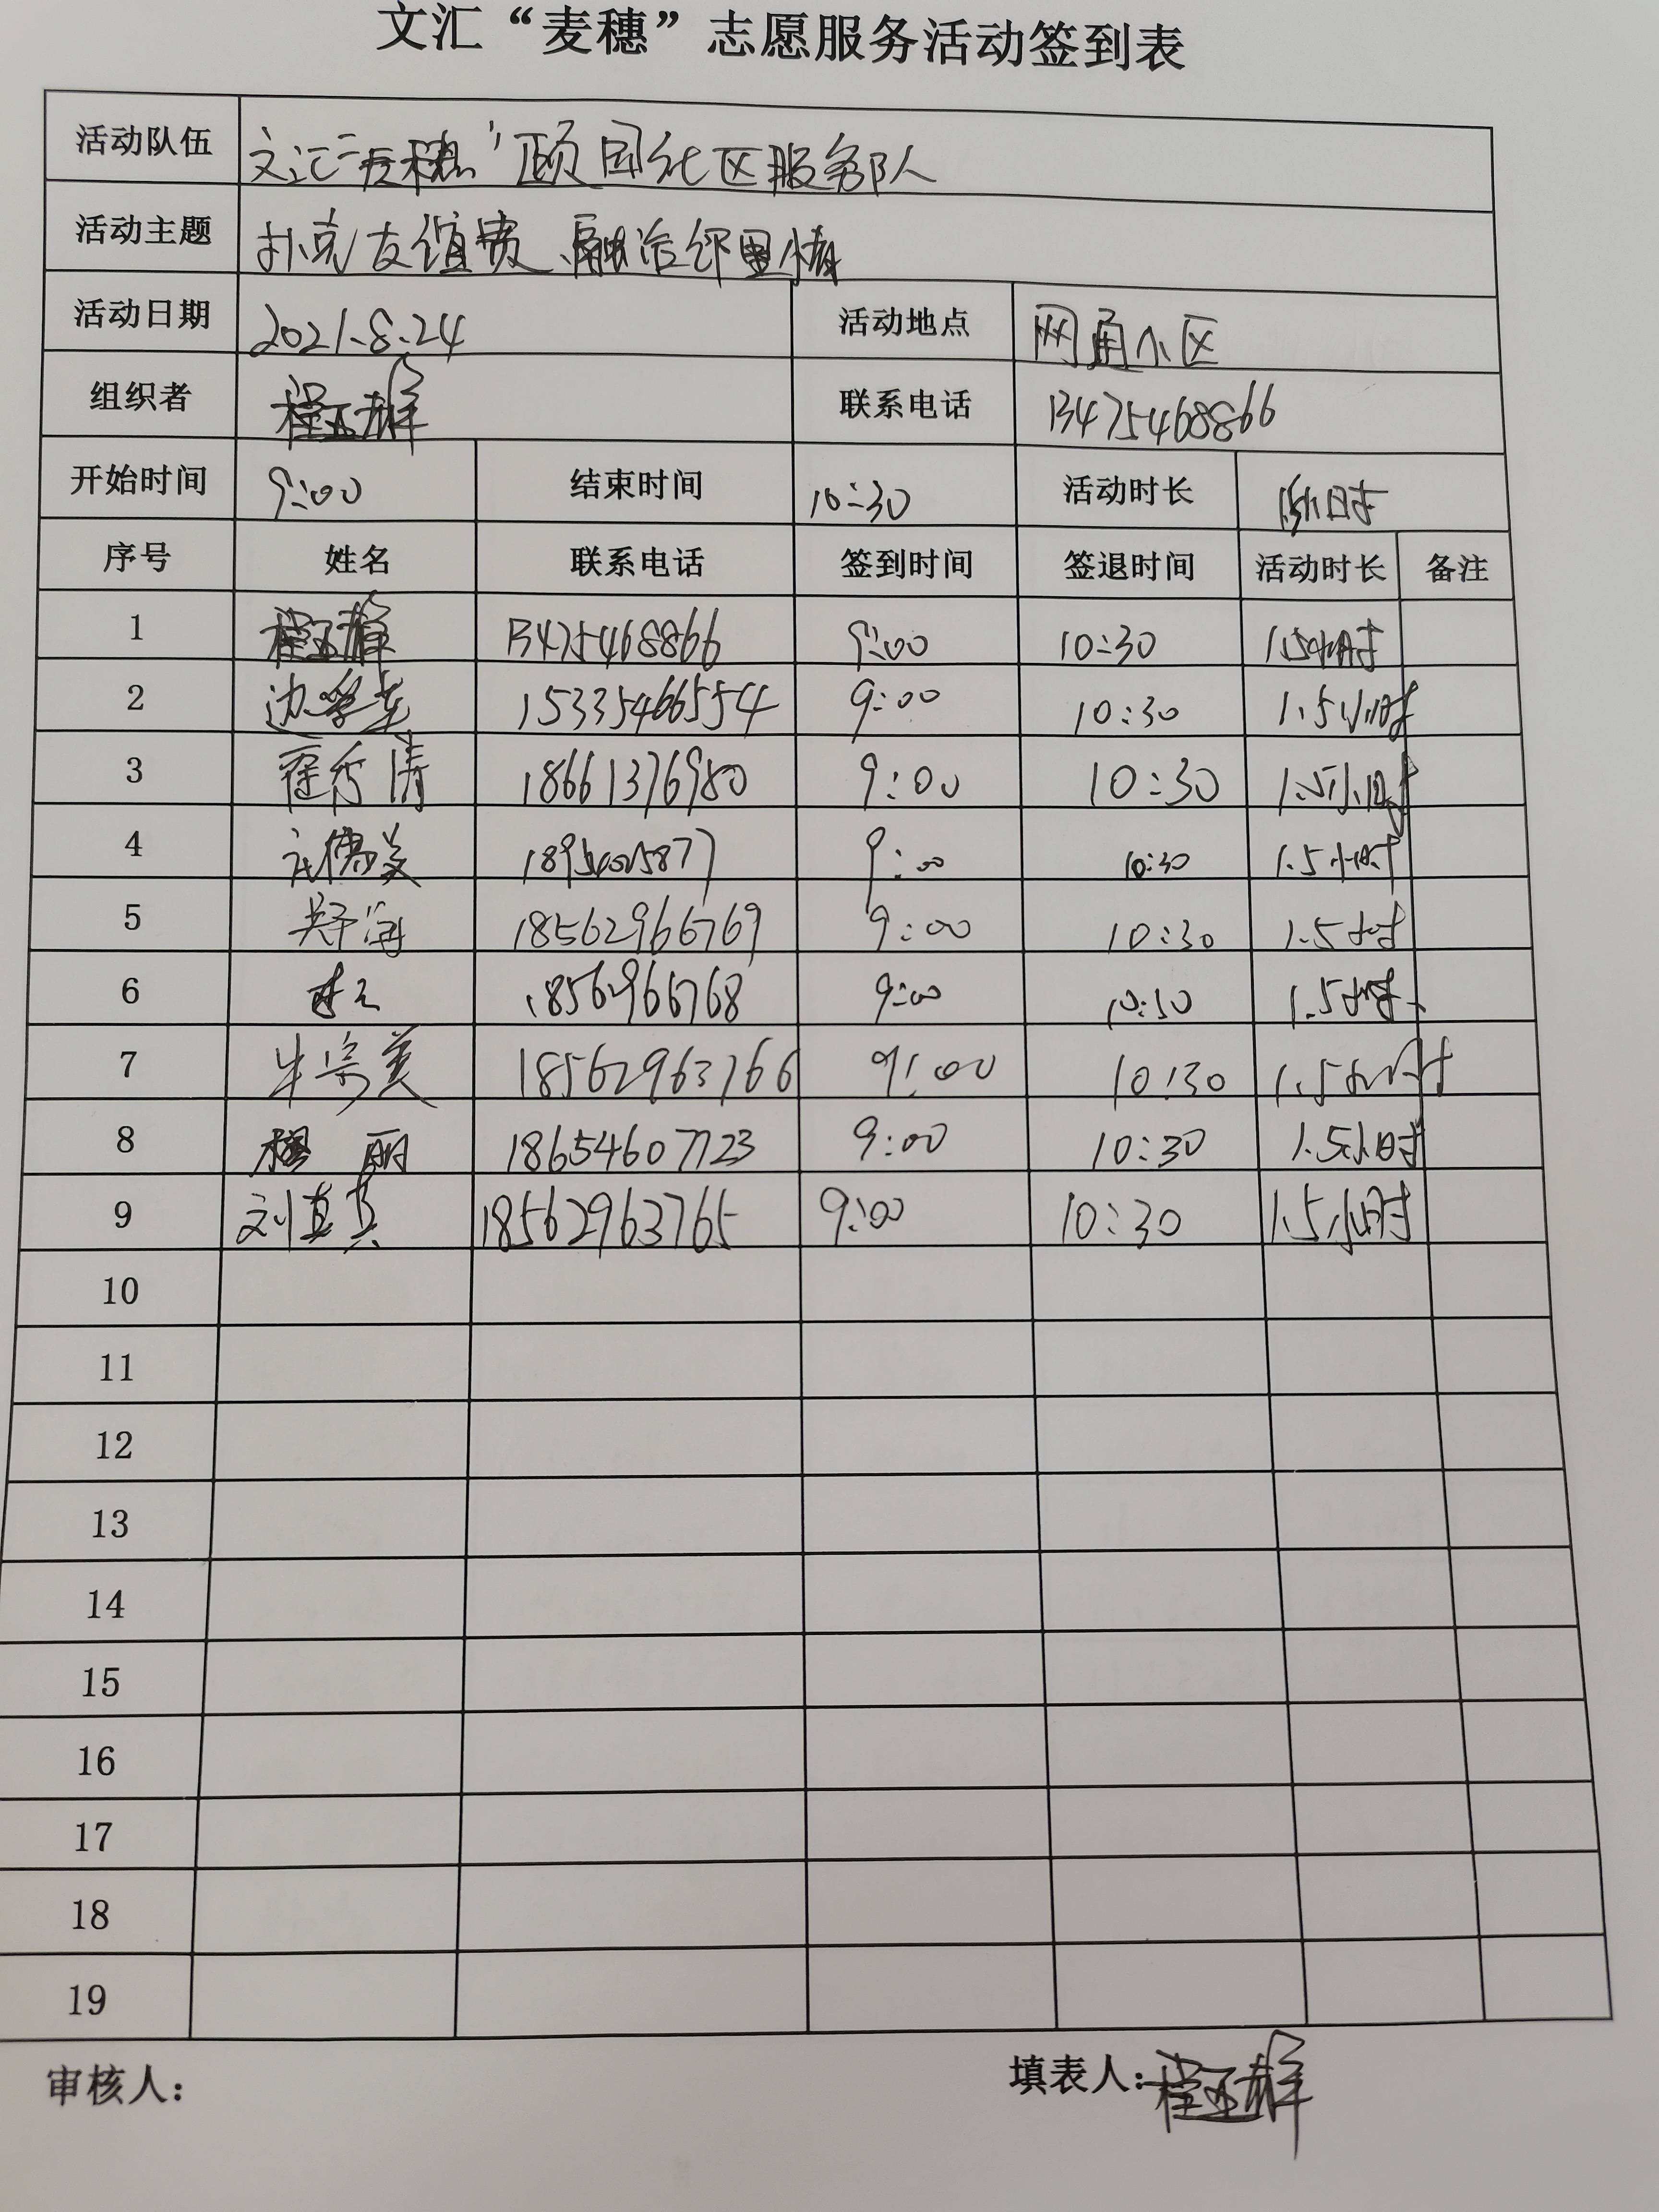 文汇“麦穗”志愿服务活动签到表
活动队伍 文汇“麦穗”颐园社区服务队
活动主题 扑克友谊赛、融洽邻里情
活动日期 2021.8.24 活动地点 网通小区
组织者 联系电话 13475468866
开始时间 9:00 结束时间 10:30 活动时长 1.5小时
序号 姓名 联系电话 签到时间 签退时间 活动时长 备注
1 13475468866 9:00 10:30 1.5小时
2 15335466554 9:00 10:30 1.5小时
3 18661376980 9:00 10:30 1.5小时
4 9:00 10:30 1.5小时
5 18562966769 9:00 10:30 1.5小时
6 18562966768 9:00 10:30 1.5小时
7 牛宗美 18562963766 9:00 10:30 1.5小时
8 丽 18654607723 9:00 10:30 1.5小时
9 刘真真 18562963765 9:00 10:30 1.5小时
10
11
12
13
14
15
16
17
18
19
审核人: 填表人: